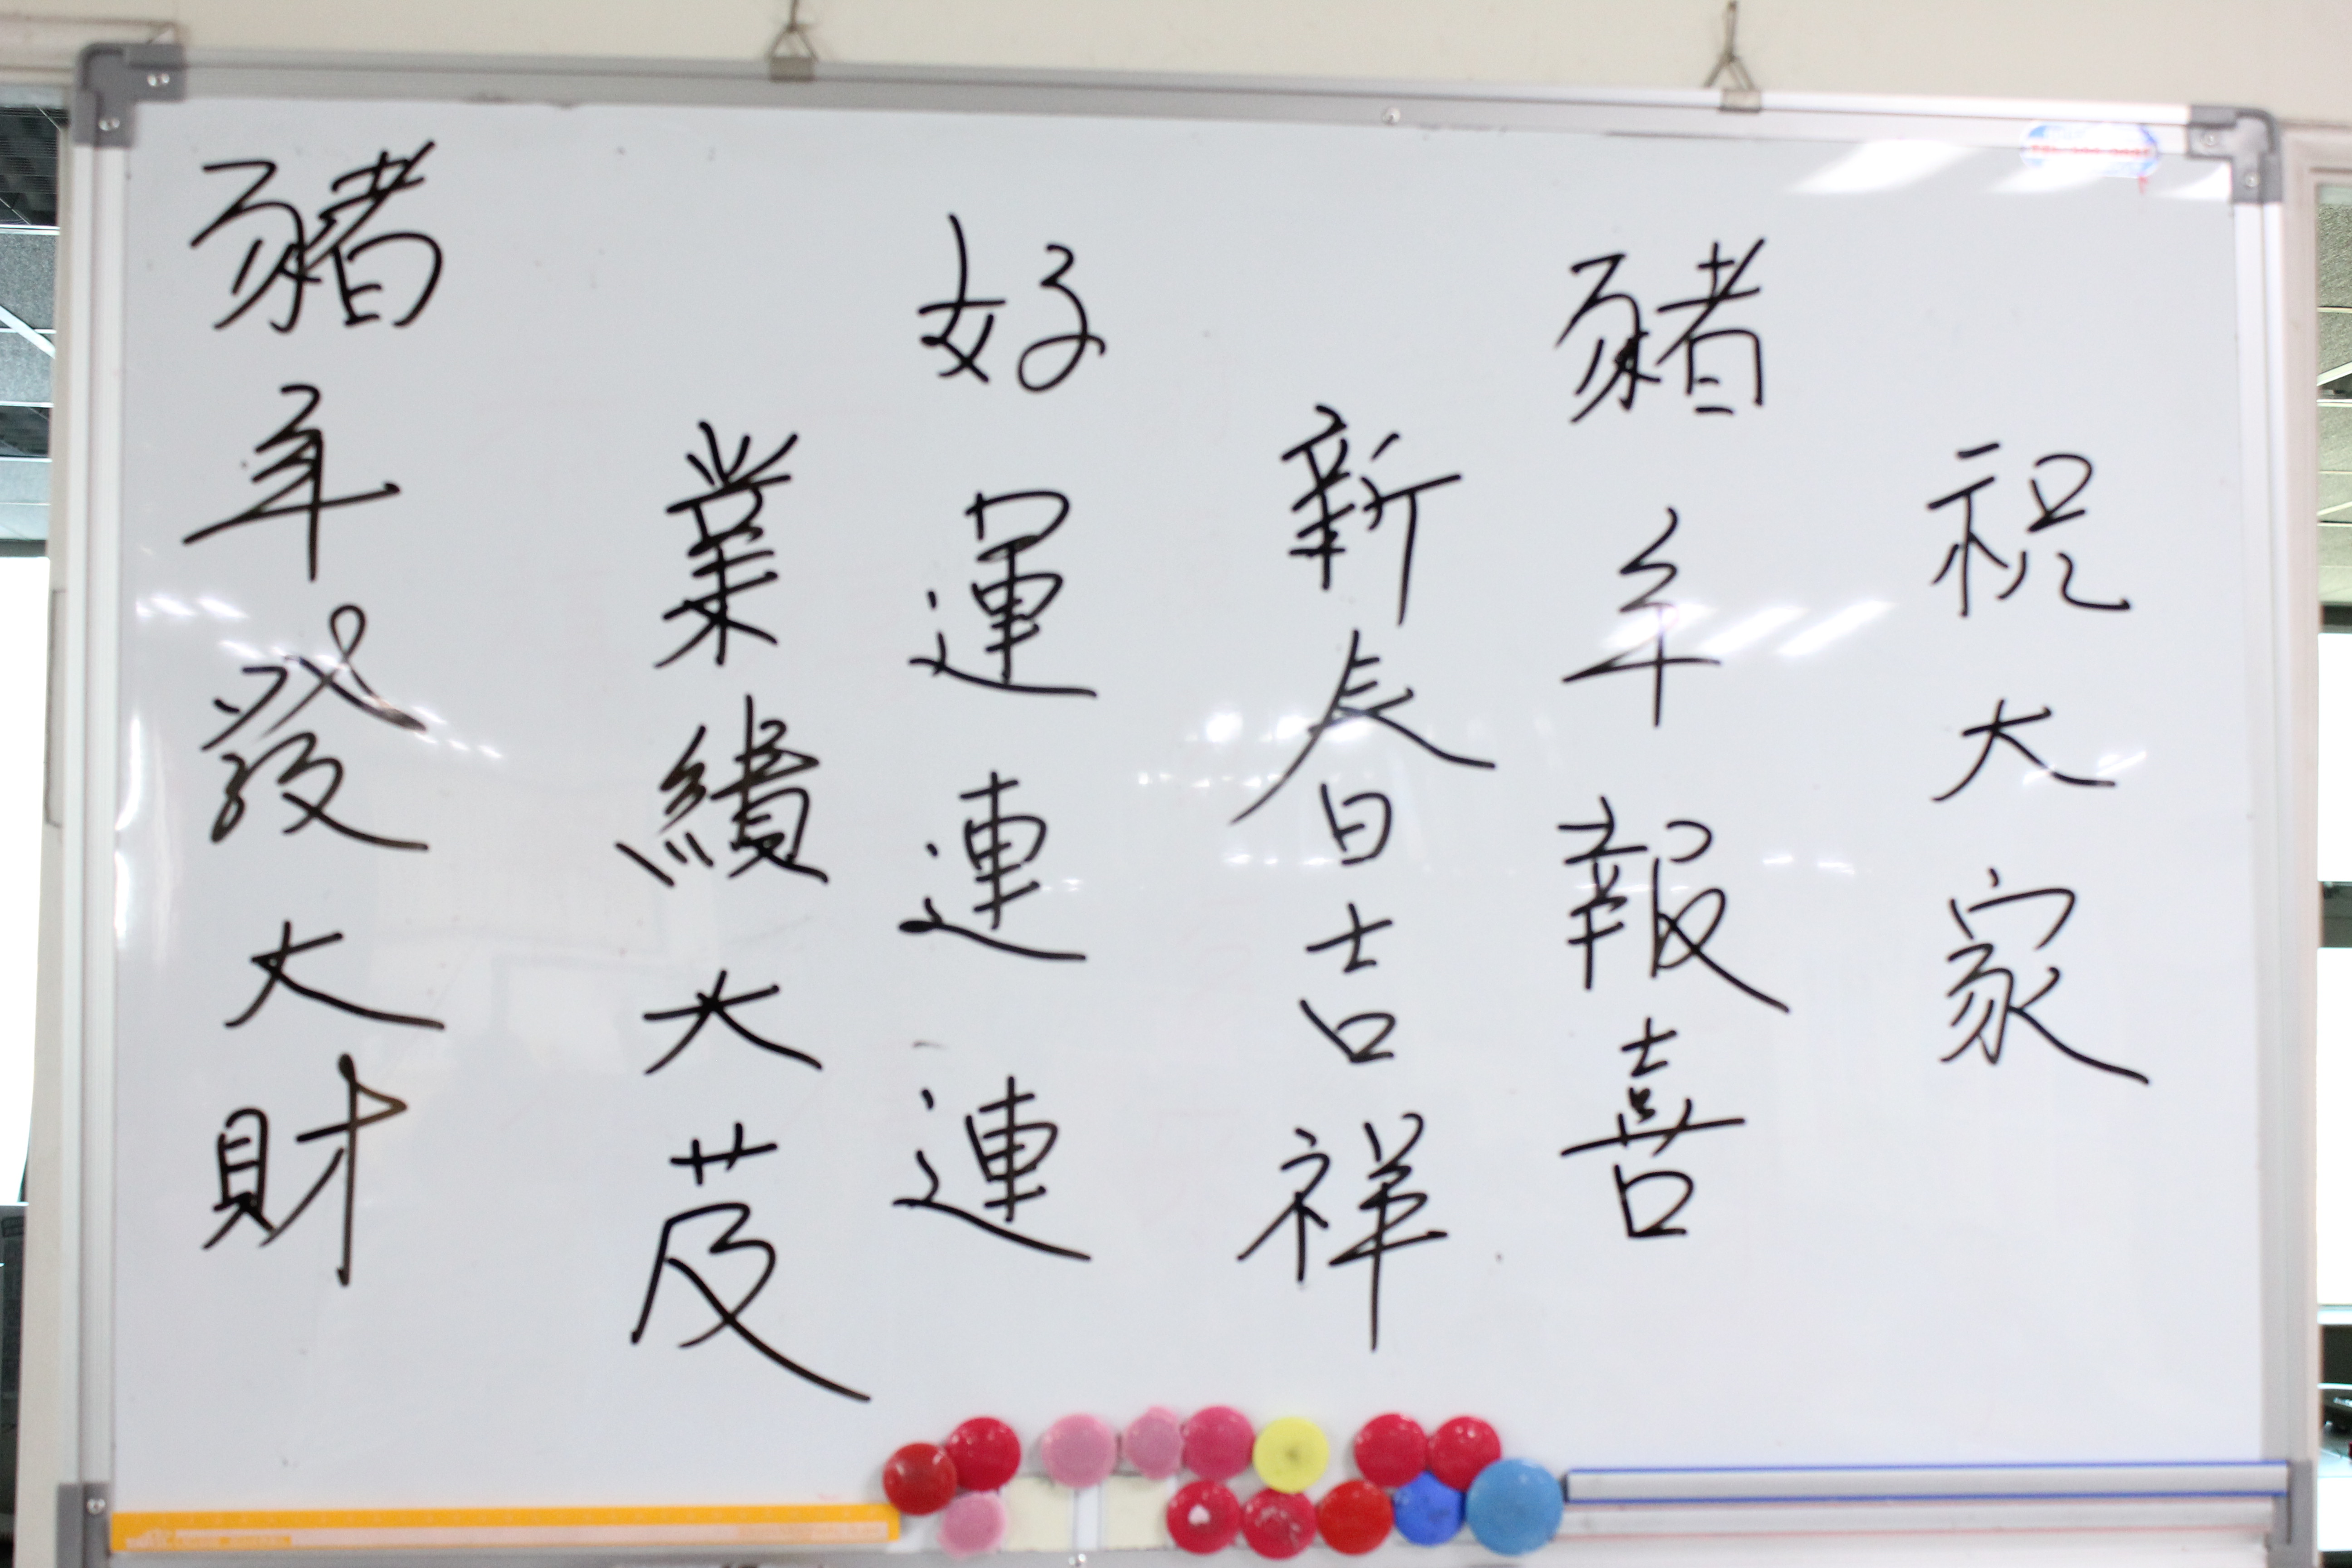 祝大家
豬年報喜
新春吉祥
好運連連
業績大芨
豬年發大財